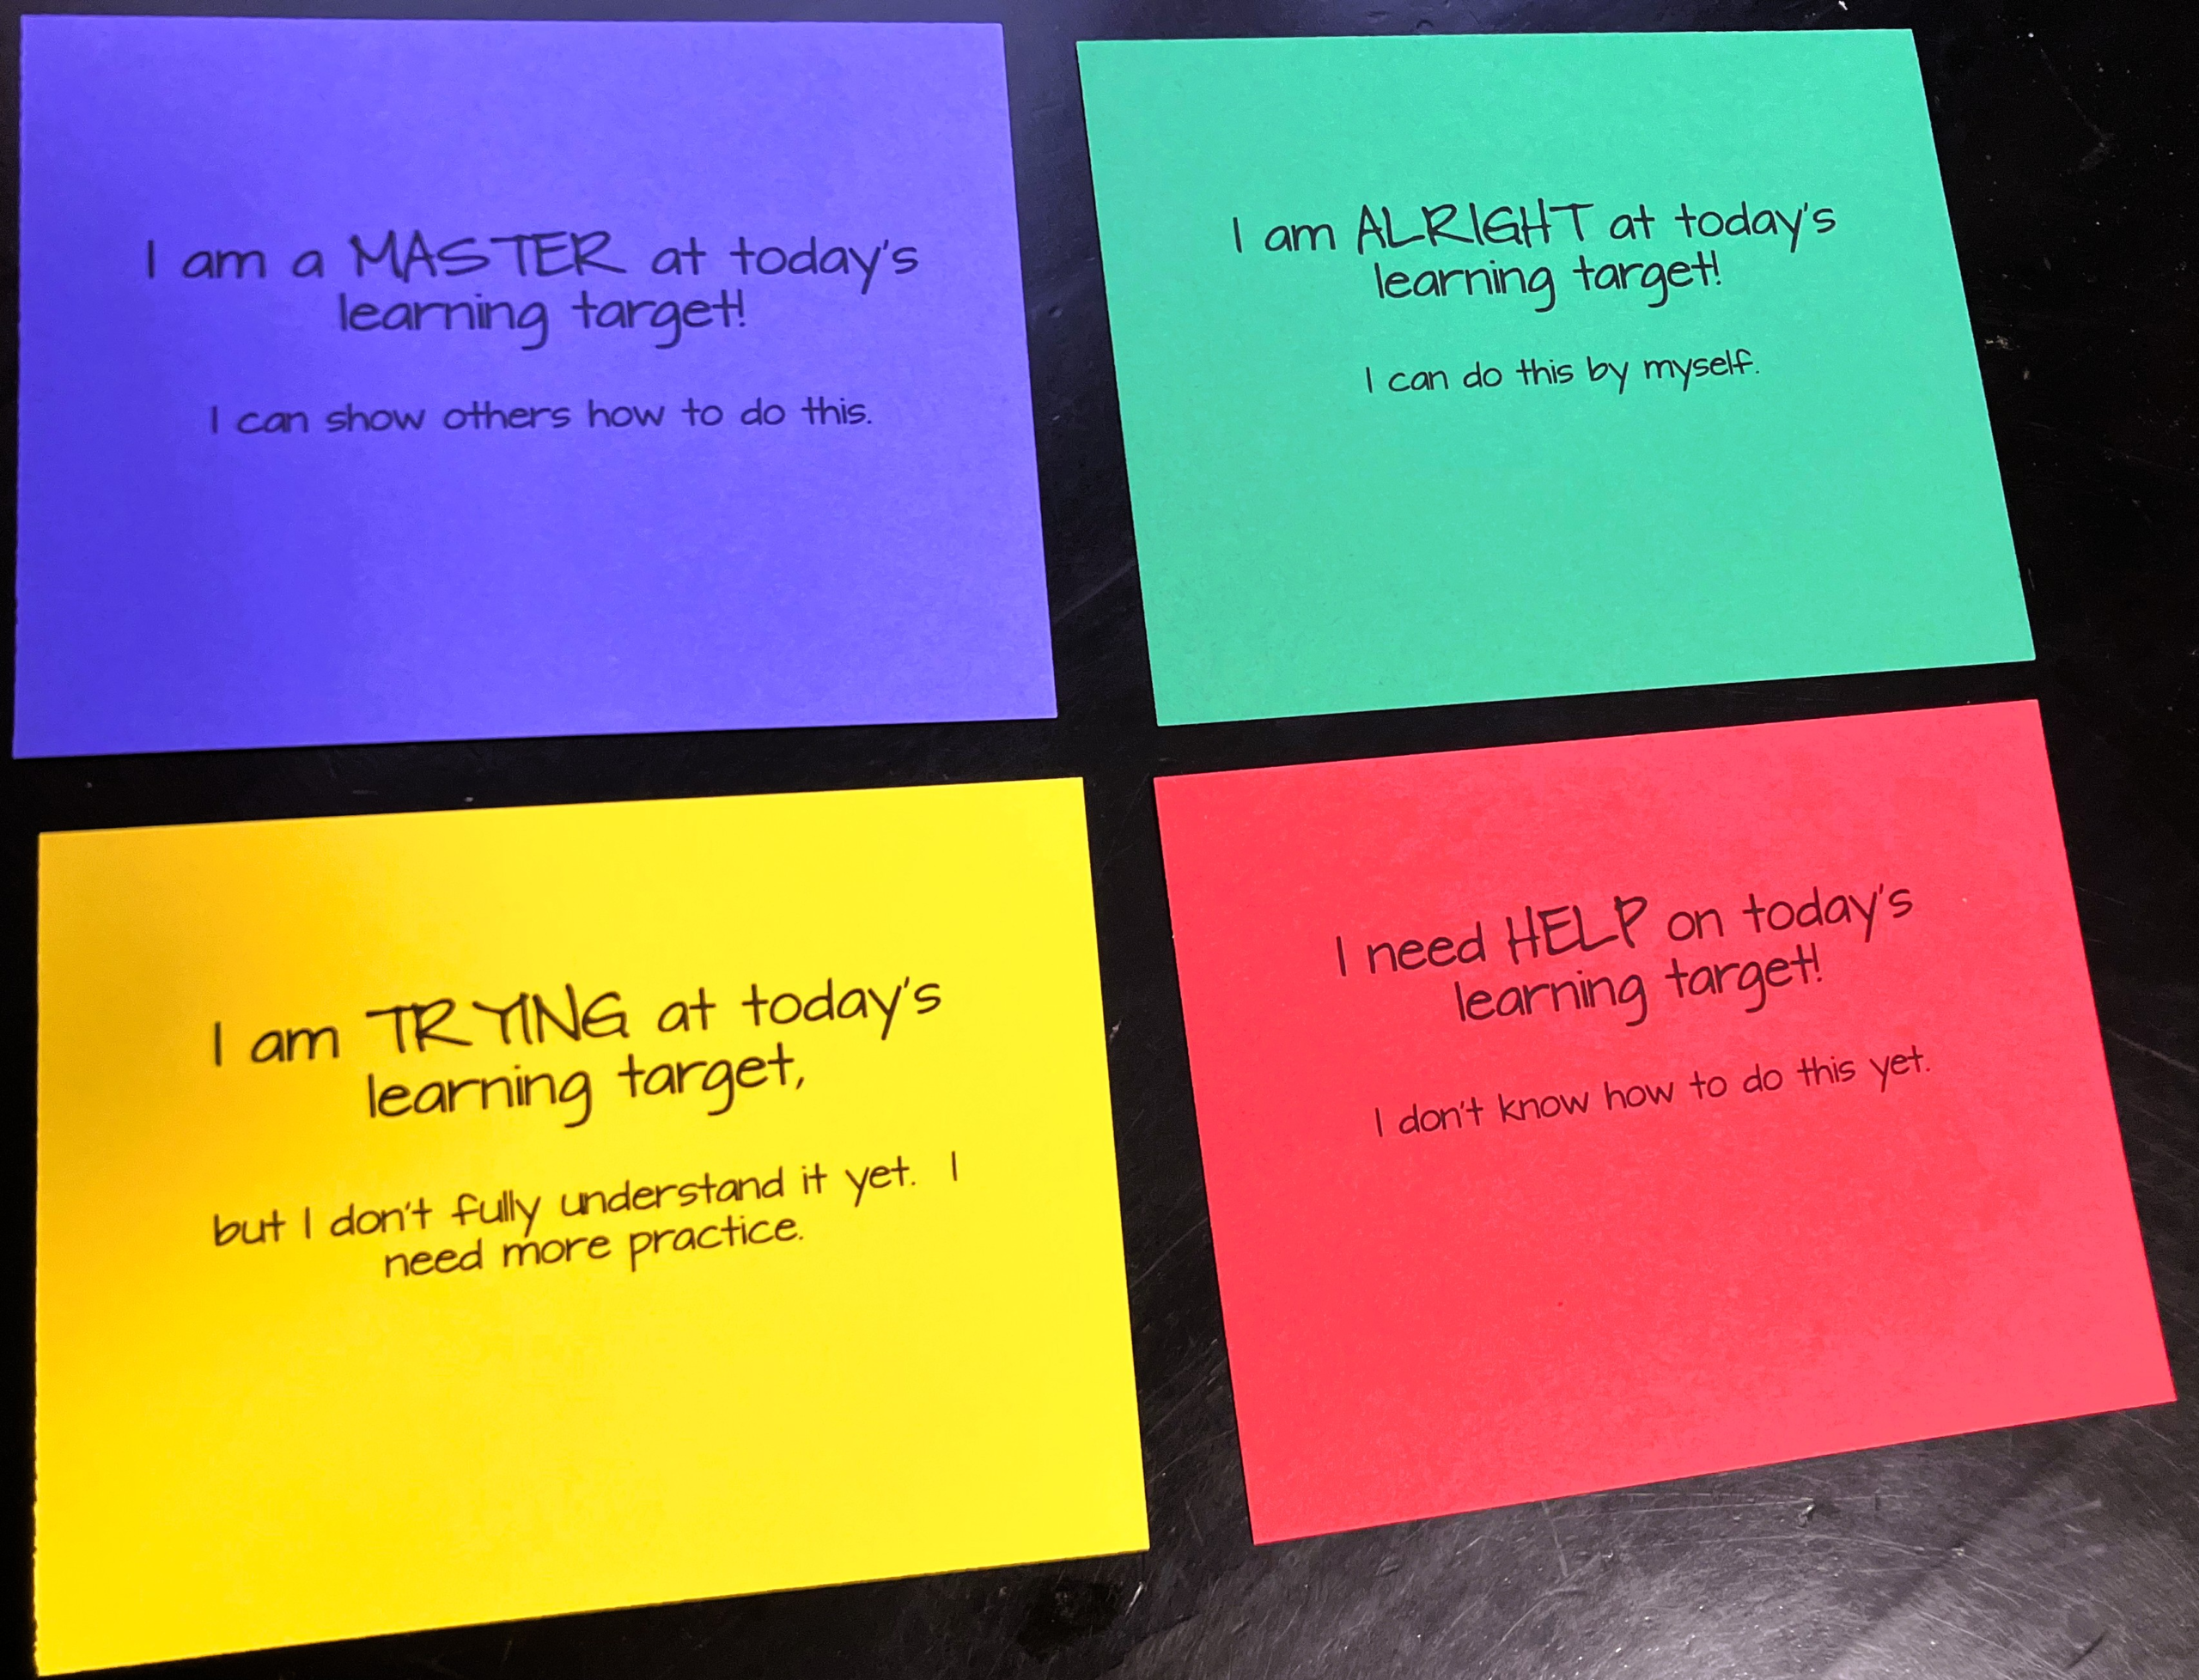 I am a MASTER at today's
learning target!
I can show others how to do this.
I am ALRIGHT at today's
learning target!
I can do this by myself.
I am TRYING at today's
learning target,
but I don't fully understand it yet. I
need more practice.
I need HELP on today's
learning target!
I don't know how to do this yet.